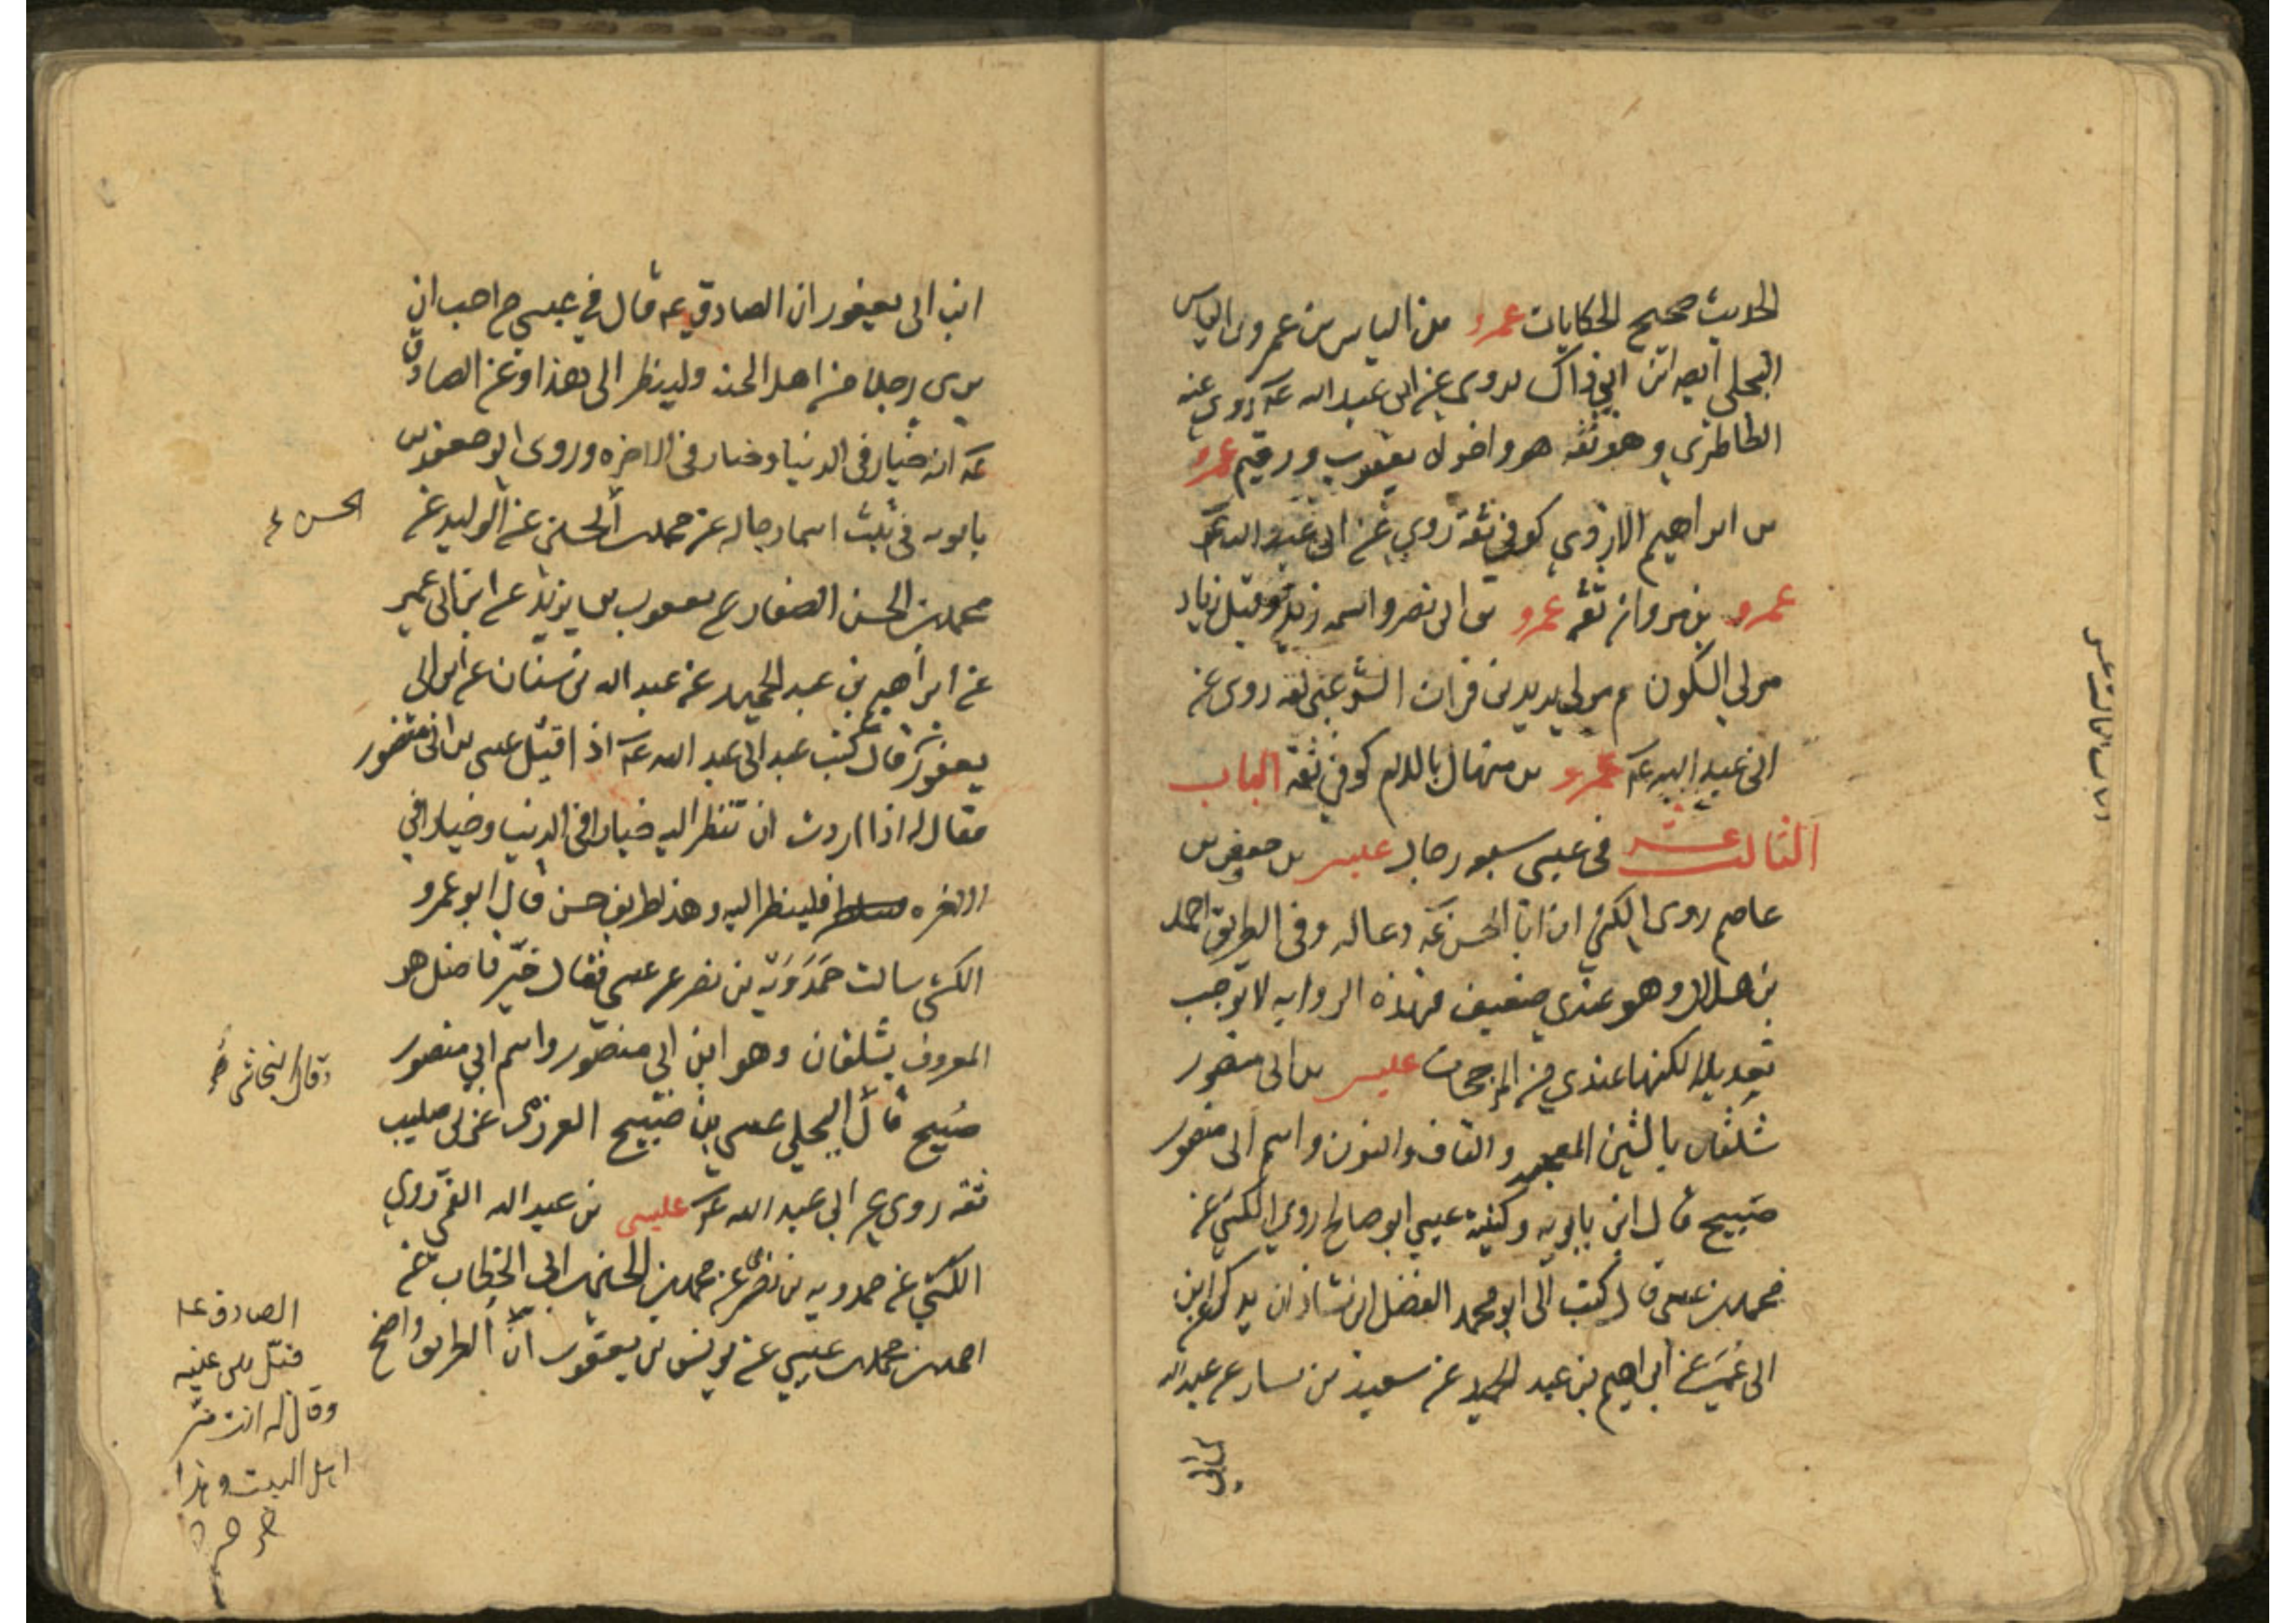 الحديث صحيح الحكايات عمرو بن الياس بن عمرو بن الياس
البجلي ايضا ابن ابن ذاك يروي عن ابي عبد الله عه روى عنه
الطاطري وهو ثقة هو واخواه يعقوب ورقيم عمرو
بن ابراهيم الازدي كوفي ثقة روى عن ابي عبد الله عه
عمرو بن مروان ثقة عمرو بن ابي نصر واسمه زيد وقيل زياد
مولى السكون م مولى يزيد بن فرات الشرعبي ثقة روى عن
ابي عبد الله عه عمرو بن منهال باللام كوفي ثقة الباب
الثالث عشر في عيسى رجال عيسى بن جعفر بن
عاصم روى الكشي ان ابا الحسن عه دعا له وفي الطريق احمد
بن هلال وهو عندي ضعيف فهذه الرواية لا توجب
تعديلا لكنها عندي من المرجحات عيسى بن ابي منصور
شلقان بالشين المعجمه والقاف والنون واسم ابي منصور
صبيح قال ابن بابويه وكنية عيسى ابو صالح روى الكشي عن
محمد بن عيسى قال كتب الى ابو محمد الفضل ابن شاذان يذكر عن ابن
ابي عمير عن ابراهيم بن عبد الحميد عن سعيد بن يسار عن عبد الله
ابن ابي يعفور ان الصادق عه قال في عيسى من احب ان
يرى رجلا من اهل الجنة ولينظر الى هذا وعن الصادق
عه انه خيار في الدنيا وخيار في الاخره وروى ابو جعفر بن
بابويه في ثبت اسماء رجاله عن محمد بن الحسن عن الوليد عن
الحسن
محمد بن الحسن الصفار عن يعقوب بن يزيد عن ابن ابي عمير
عن ابراهيم بن عبد الحميد عن عبد الله بن سنان عن ابن ابي
يعفور قال كنت عند ابي عبد الله عه اذ اقبل عيسى بن ابي منصور
فقال له اذا اردت ان تنظر اليه خيارا في الدنيا وخيارا في
الاخره فلينظر اليه وهذا طريق حسن قال ابو عمرو
الكشي سالت حمدويه بن نصر عن عيسى فقال خير فاضل هو
المعروف بشلقان وهو ابن ابي منصور واسم ابي منصور
وقال النجاشي
صبيح قال البجلي عيسى بن صبيح العرزمى عربى صليب
ثقة روى عن ابي عبد الله عه عيسى بن عبد الله القمي روى
الكشي عن حمدويه بن نصر عن محمد بن الحسن بن ابي الخطاب عن
احمد بن محمد بن عيسى عن يونس بن يعقوب ان الطريق واضح
الصادق عه
قبل بين عينيه
وقال له انت من
اهل البيت وهذا